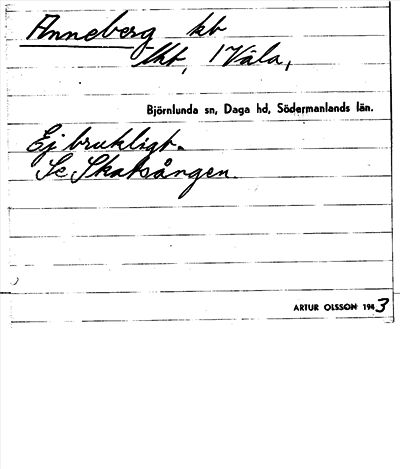 Anneberg kt
lkt, 1 Väla,
Björnlunda sn, Daga hd, Södermanlands län.
Ej brukligt.
Se Skatsången.
ARTUR OLSSON 1943